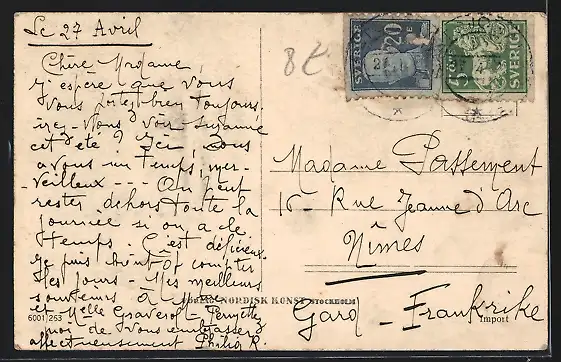 Le 27 Avril
Chère Madame,
j'espère que vous
vous portez bien toujours,
irez-vous voir Suzanne
cet été ? Ici nous
avons un temps, mer-
-veilleux --- On peut
rester dehors toute la
journée si on a le
temps. C'est délicieux.
Je puis bientôt compter
les jours - Mes meilleurs
souvenirs à
et Melle Graverol - Permettez
moi de vous embrasser
affectueusement Philip R.
8€
SVERIGE
20
SVERIGE
5
Madame Passement
16 - Rue Jeanne d'Arc
Nîmes
Gard - Frankrike
NORDISK KONST STOCKHOLM
6001 253
Import